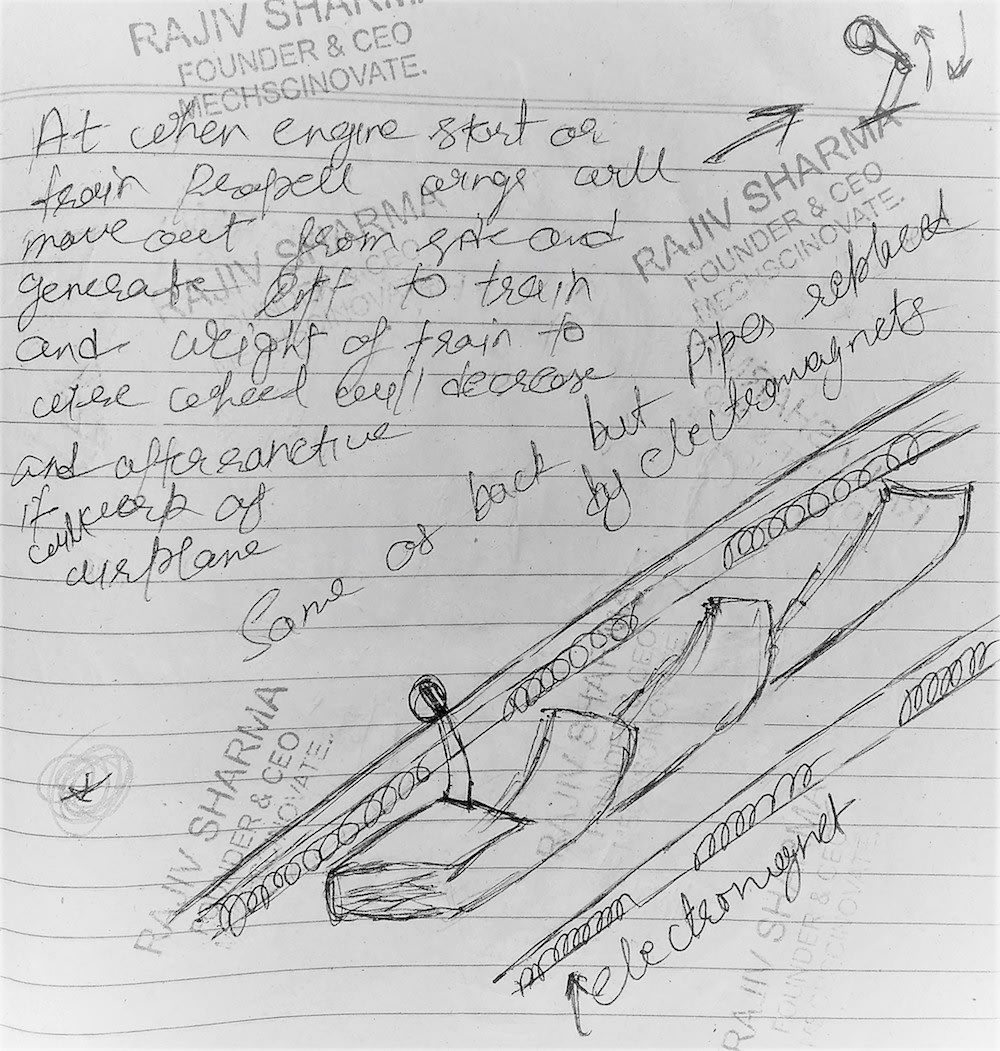 RAJIV SHARMA
FOUNDER & CEO
MECHSCINOVATE.
At when engine start or
train Propell wings will
move out from side and
generate lift to train
and weight of train to
wheel will decrease
and after
it will work as
airplane
Same as back but Pipes replaced
by electromagnets
RAJIV SHARMA
FOUNDER & CEO
MECHSCINOVATE.
RAJIV SHARMA
FOUNDER & CEO
MECHSCINOVATE.
RAJIV SHARMA
RAJIV SHARMA
FOUNDER & CEO
electromagnet
RAJIV SHARMA
FOUNDER & CEO